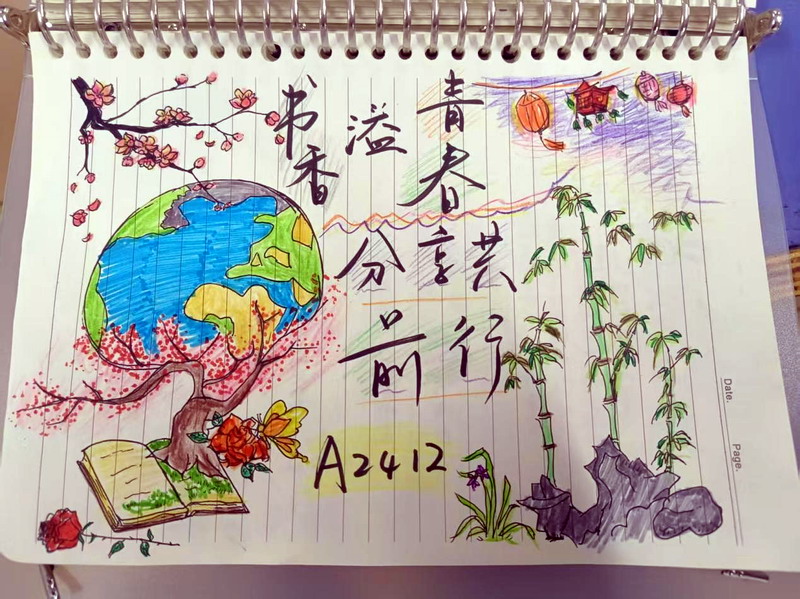 书香溢青春
分享共
前行
A2412
Date.
Page.